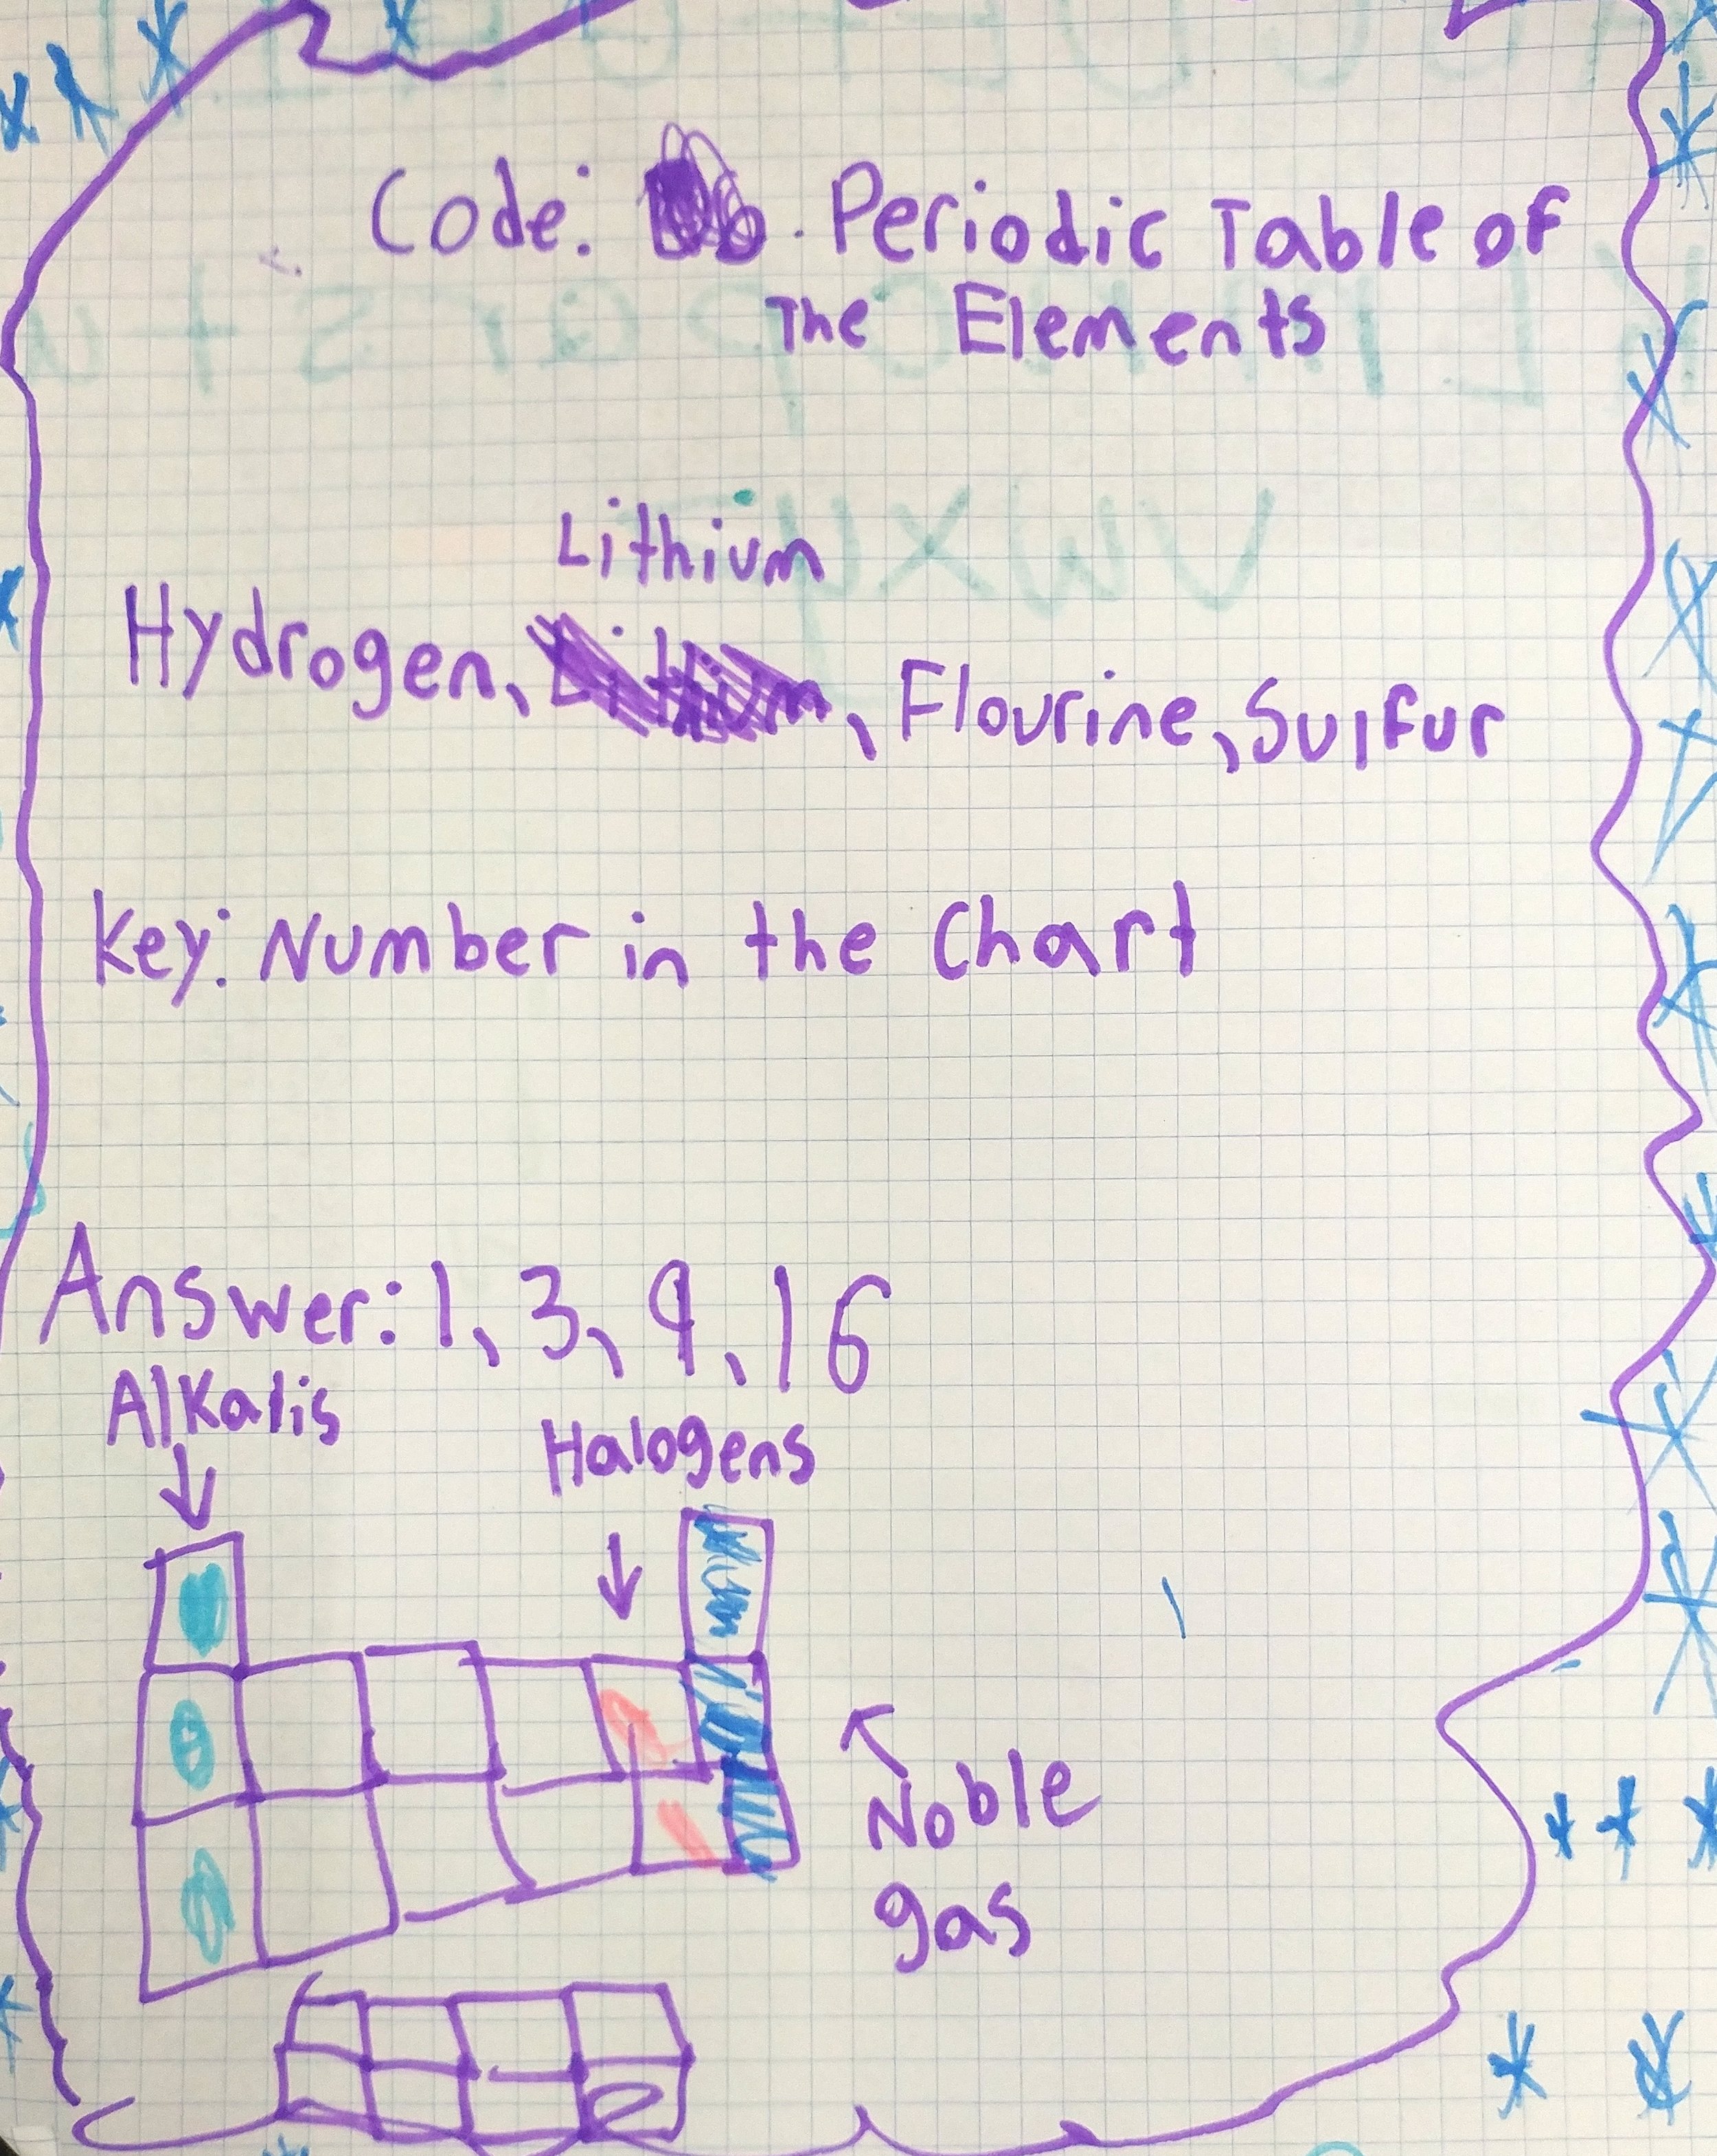 Code: Periodic Table of
The Elements
Lithium
Hydrogen, Lithium, Flourine, Sulfur
Key: Number in the Chart
Answer: 1, 3, 9, 16
Alkalis
Halogens
Noble
gas